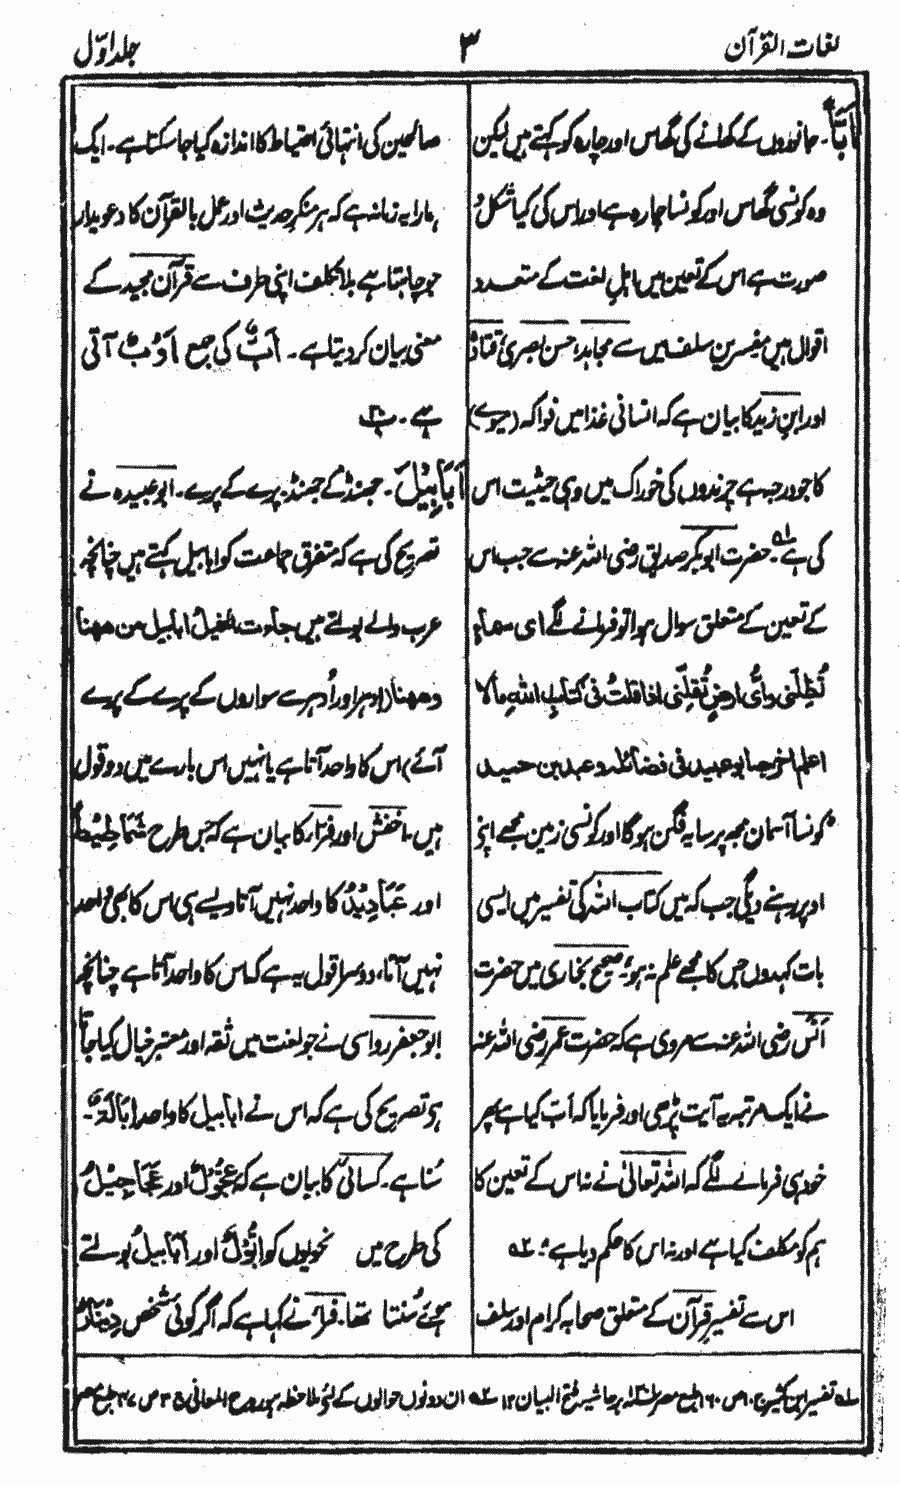 لغات القرآن
۳
جلد اوّل
اَبًّا۔ جانوروں کے کھانے کی گھاس اور چارہ کو کہتے ہیں لیکن
وہ کونسی گھاس اور کونسا چارہ ہے اور اس کی کیا شکل و
صورت ہے اس کے تعین میں اہلِ لغت کے متعدد
اقوال ہیں مفسرین سلف میں سے مجاہد، حسن بصریؒ، قتادہؒ
اور ابن زید کا بیان ہے کہ انسانی غذا میں فواکہ (میوے)
کا جو درجہ ہے چرندوں کی خوراک میں وہی حیثیت اس
کی ہے لہ۔ حضرت ابوبکر صدیق رضی اللہ عنہ سے جب اس
کے تعین کے متعلق سوال ہوا تو فرمانے لگے ای سماء
تُظِلّنی و ایُّ ارضٍ تُقِلّنی اذا قلتُ فی کتاب اللہِ مالا
اعلم اخرجہ ابوعبید فی فضائلہ و عبد بن حمید
کونسا آسمان مجھ پر سایہ فگن ہوگا اور کونسی زمین مجھے اپنے
اوپر رہنے دیگی جب کہ میں کتاب اللہ کی تفسیر میں ایسی
بات کہدوں جس کا مجھے علم نہ ہو، صحیح بخاری میں حضرت
انس رضی اللہ عنہ سے مروی ہے کہ حضرت عمر رضی اللہ عنہ
نے ایک مرتبہ یہ آیت پڑھی اور فرمایا کہ اَبّ کیا ہے پھر
خود ہی فرمانے لگے کہ اللہ تعالیٰ نے نہ اس کے تعین کا
ہم کو مکلف کیا ہے اور نہ اس کا حکم دیا ہے۔ ۲ہ
اس سے تفسیر قرآن کے متعلق صحابہ کرام اور سلف
صالحین کی انتہائی احتیاط کا اندازہ کیا جا سکتا ہے۔ ایک
ہمارا یہ زمانہ ہے کہ ہر منکرِ حدیث اور عمل بالقرآن کا دعویدار
جو چاہتا ہے بلا تکلف اپنی طرف سے قرآن مجید کے
معنی بیان کر دیتا ہے۔ اَبٌّ کی جمع اَوُبٌّ آتی
ہے۔ پ۳۰
اَبَابِیْلَ۔ جھنڈ کے جھنڈ، پرے کے پرے۔ ابوعبیدہ نے
تصریح کی ہے کہ متفرق جماعت کو ابابیل کہتے ہیں چنانچہ
عرب والے بولتے ہیں جاءت الخیلُ ابابیل من ھھنا
وھھنا (ادہر اور اُدہر سے سواروں کے پرے کے پرے
آئے) اس کا واحد آتا ہے یا نہیں اس بارے میں دو قول
ہیں۔ اخفش اور فراء کا بیان ہے کہ جس طرح شَمَاطِیْطُ
اور عَبَادِیْدُ کا واحد نہیں آتا ویسے ہی اس کا بھی واحد
نہیں آتا، دوسرا قول یہ ہے کہ اس کا واحد آتا ہے چنانچہ
ابوجعفر رواسی نے جو لغت میں ثقہ اور معتبر خیال کیا جاتا
ہو تصریح کی ہے کہ اس نے ابابیل کا واحد اِبَّالَۃٌ۔
سُنا ہے۔ کسائی کا بیان ہے کہ عِجَّوْلٌ اور عَجَاجِیْلُ
کی طرح میں نحویوں کو اِبَّوْلٌ اور اَبَابِیلُ بولتے
ہوئے سُنتا تھا۔ فراء نے کہا ہے کہ اگر کوئی شخص دِیْنَارٌ
لہ تفسیر ابن کثیر ج۱۰ ص۱۶۰ طبع مصر برحاشیہ فتح البیان ۱۲ ۲ہ ان دونوں حوالوں کے لئے ملاحظہ ہو روح المعانی ج۳۰ ص۴۷ طبع مصر